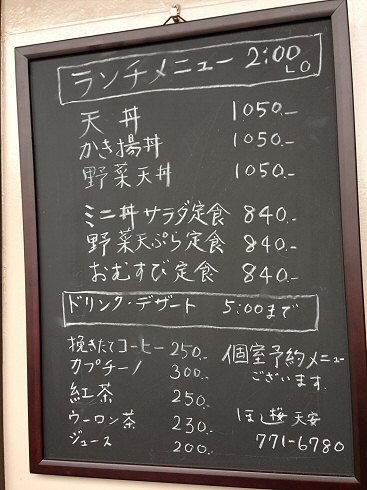 ランチメニュー 2:00 LO
天丼 1050.-
かき揚丼 1050.-
野菜天丼 1050.-
ミニ丼サラダ定食 840.-
野菜天ぷら定食 840.-
おむすび定食 840.-
ドリンク・デザート 5:00まで
挽きたてコーヒー 250.-
カプチーノ 300.-
紅茶 250.-
ウーロン茶 230.-
ジュース 200.-
個室予約メニュー
ございます.
天安
771-6780